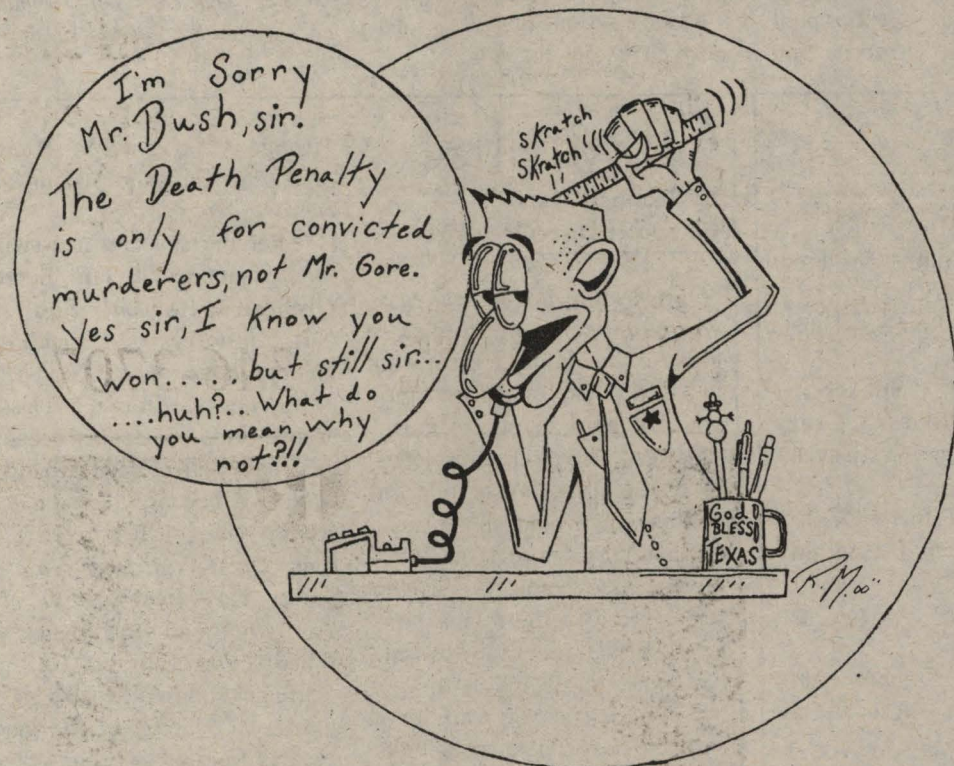 I'm Sorry
Mr. Bush, sir.
The Death Penalty
is only for convicted
murderers, not Mr. Gore.
Yes sir, I Know you
won..... but still sir...
....huh?.. What do
you mean why
not?!!
skratch
skratch
God
BLESS
TEXAS
R.M. 00